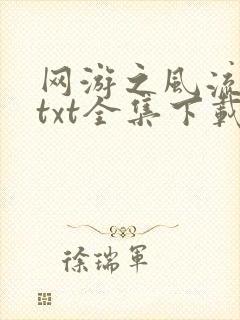 网游之风流
txt全集下载
徐瑞军